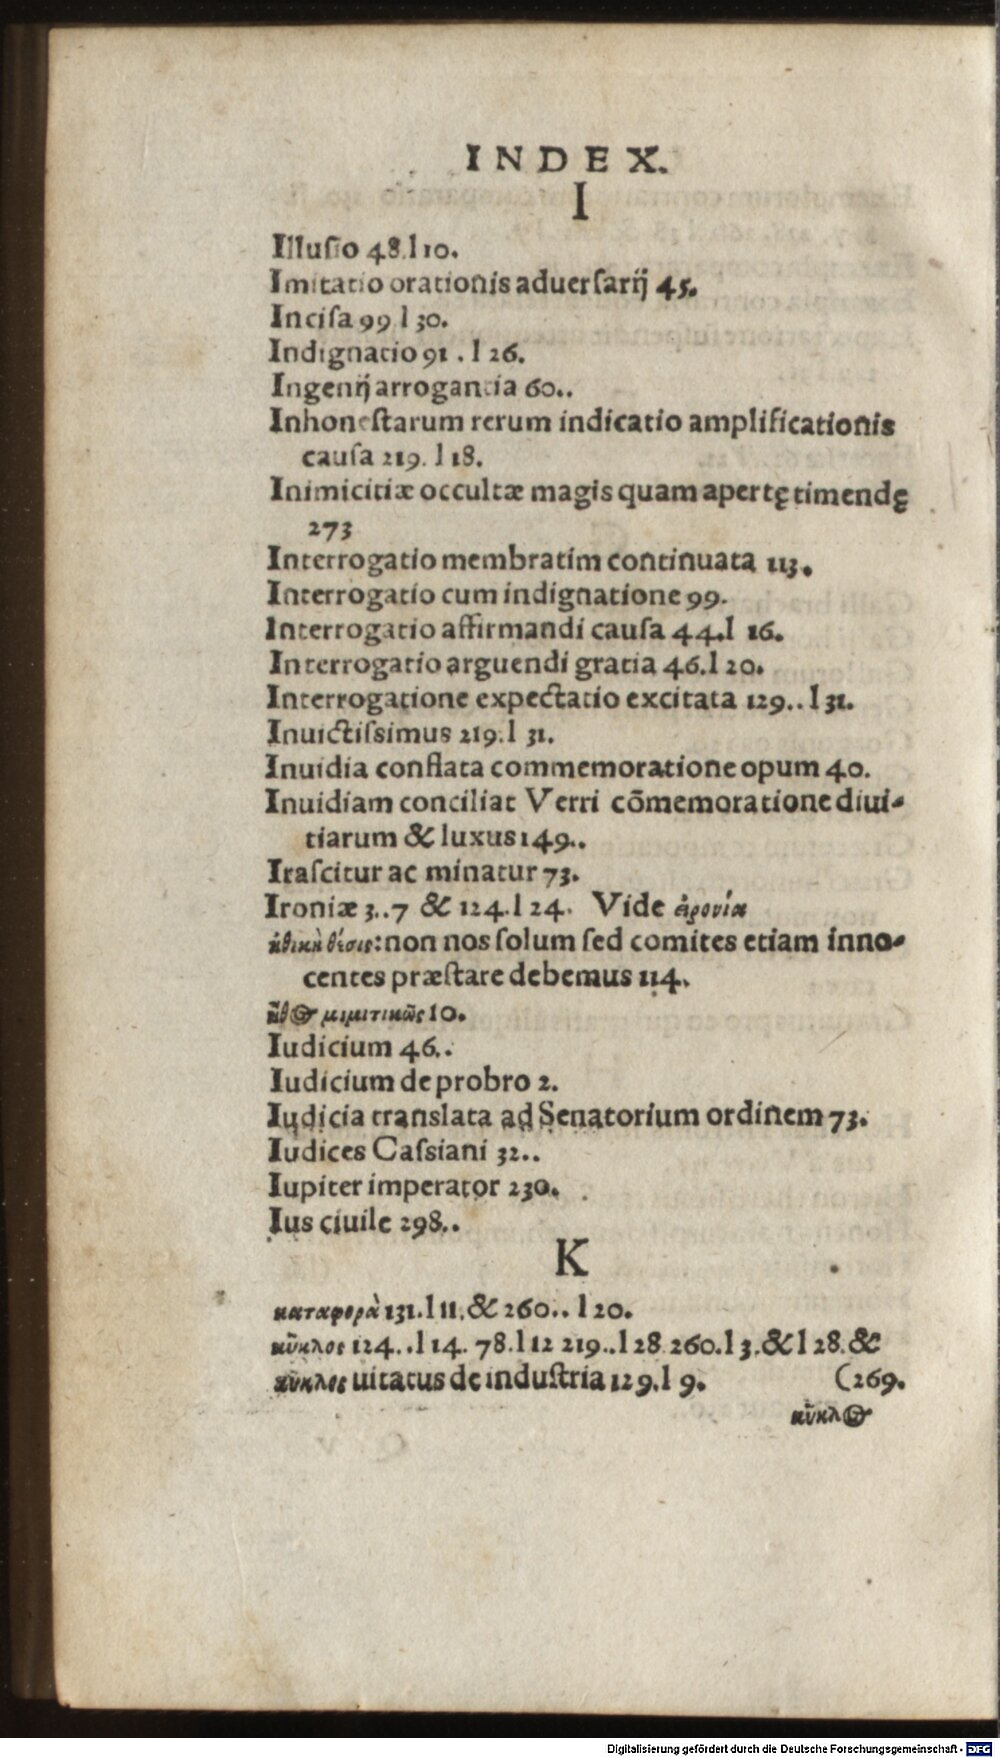 INDEX.
I
Illuſio 48.l 10.
Imitatio orationis aduerſarij 45.
Inciſa 99 l 30.
Indignatio 91 . l 26.
Ingenij arrogantia 60..
Inhoneſtarum rerum indicatio amplificationis
cauſa 219. l 18.
Inimicitiæ occultæ magis quam apertę timendę
273
Interrogatio membratim continuata 113.
Interrogatio cum indignatione 99.
Interrogatio affirmandi cauſa 44.l 16.
Interrogatio arguendi gratia 46.l 20.
Interrogatione expectatio excitata 129.. l 31.
Inuictiſsimus 219.l 31.
Inuidia conflata commemoratione opum 40.
Inuidiam conciliat Verri cōmemoratione diui-
tiarum & luxus 149..
Iraſcitur ac minatur 73.
Ironiæ 3..7 & 124.l 24. Vide ἐρονία
ἠθικὴ θέσις: non nos ſolum ſed comites etiam inno-
centes præſtare debemus 114.
ἦθος μιμιτικῶς 10.
Iudicium 46..
Iudicium de probro 2.
Iudicia translata ad Senatorium ordinem 73.
Iudices Caſsiani 32..
Iupiter imperator 230.
Ius ciuile 298..
K
καταφορὰ 131.l 11. & 260.. l 20.
κῦκλος 124..l 14. 78.l 12 219..l 28 260.l 3.& l 28. &
κῦκλος uitatus de induſtria 129.l 9. (269.
κῦκλος
Digitalisierung gefördert durch die Deutsche Forschungsgemeinschaft - DFG